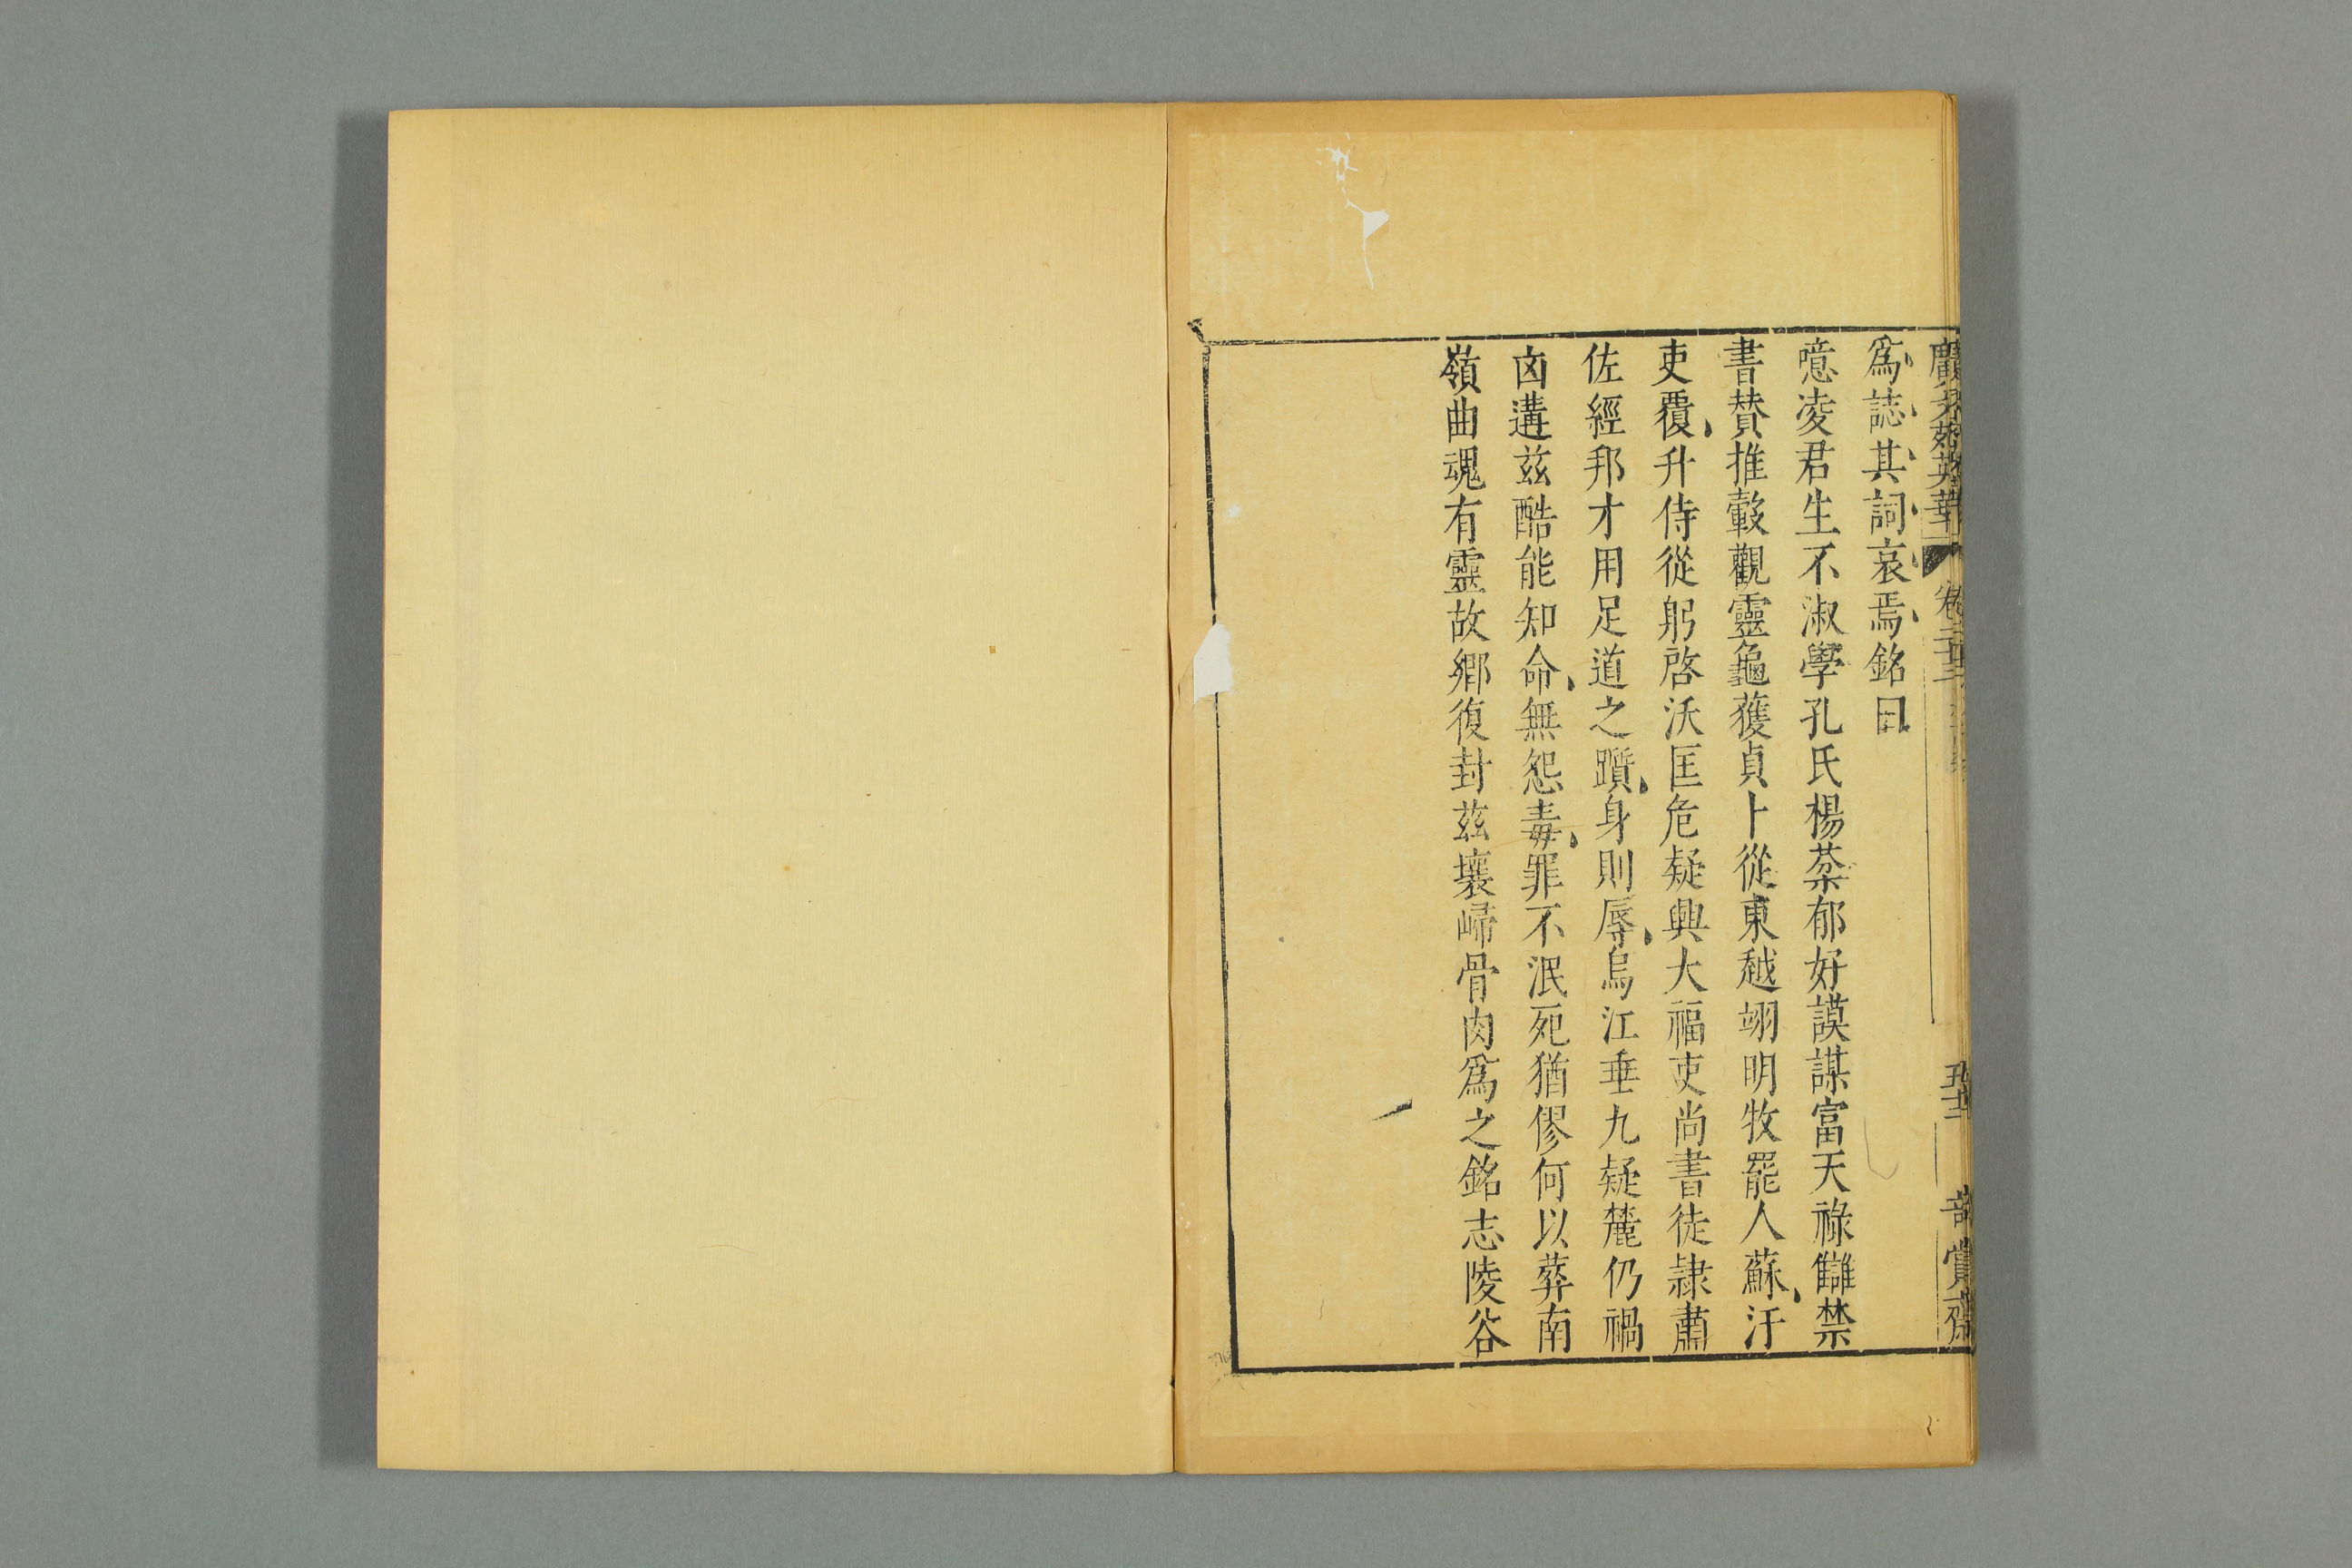 廣文苑英華 卷二十三
五十二
賞齋
爲誌其詞哀焉銘曰
噫凌君生不淑學孔氏楊棻郁好謨謀富天祿讎禁
書賛推轂觀靈龜獲貞卜從東越翊明牧罷人蘇汙
吏覆升侍從躬啓沃匡危疑興大福吏尚書徒隷肅
佐經邦才用足道之躓身則辱烏江垂九疑麓仍禍
凶遘兹酷能知命無怨毒罪不泯死猶僇何以葬南
嶺曲魂有靈故鄉復封兹壤歸骨肉爲之銘志陵谷